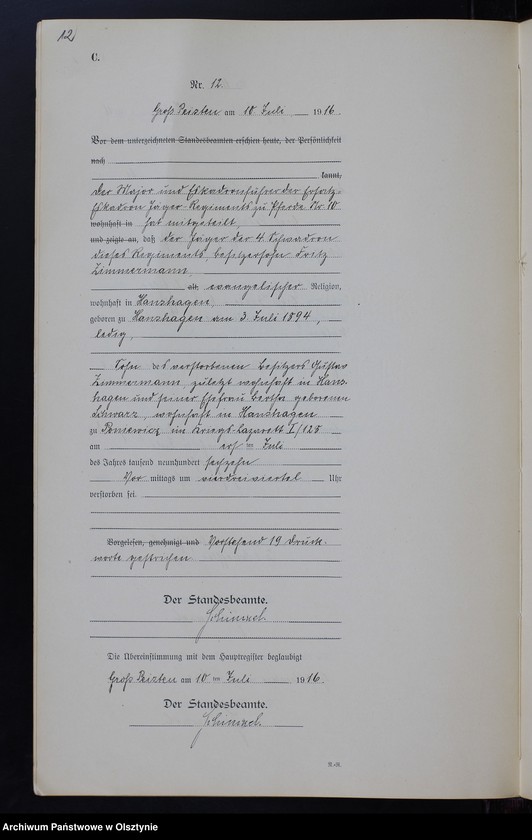 12
C.
Nr. 12.
Groß Peisten am 10 Juli 1916.
Vor dem unterzeichneten Standesbeamten erschien heute, der Persönlichkeit
nach
kannt,
der Major und Eskadronführer der Ersatz-
Eskadron Jäger-Regiments zu Pferde Nr 10
wohnhaft in hat mitgeteilt,
und zeigte an, daß der Jäger der 4. Schwadron
dieses Regiments, Besitzersohn Fritz
Zimmermann,
alt, evangelischer Religion,
wohnhaft in Hanshagen,
geboren zu Hanshagen am 3. Juli 1894,
ledig,
Sohn des verstorbenen Besitzers Gustav
Zimmermann, zuletzt wohnhaft in Hans-
hagen und seiner Ehefrau Bertha geborenen
Schwarz, wohnhaft in Hanshagen
zu Poniewicz im Kriegs-Lazarett I/125
am ten Juli
des Jahres tausend neunhundert sechzehn
Vor mittags um vierdreiviertel Uhr
verstorben sei.
Vorgelesen, genehmigt und Vorstehend 19 Druck-
worte gestrichen.
Der Standesbeamte.
Die Übereinstimmung mit dem Hauptregister beglaubigt
Groß Peisten am 10 ten Juli 1916.
Der Standesbeamte.
Archiwum Państwowe w Olsztynie